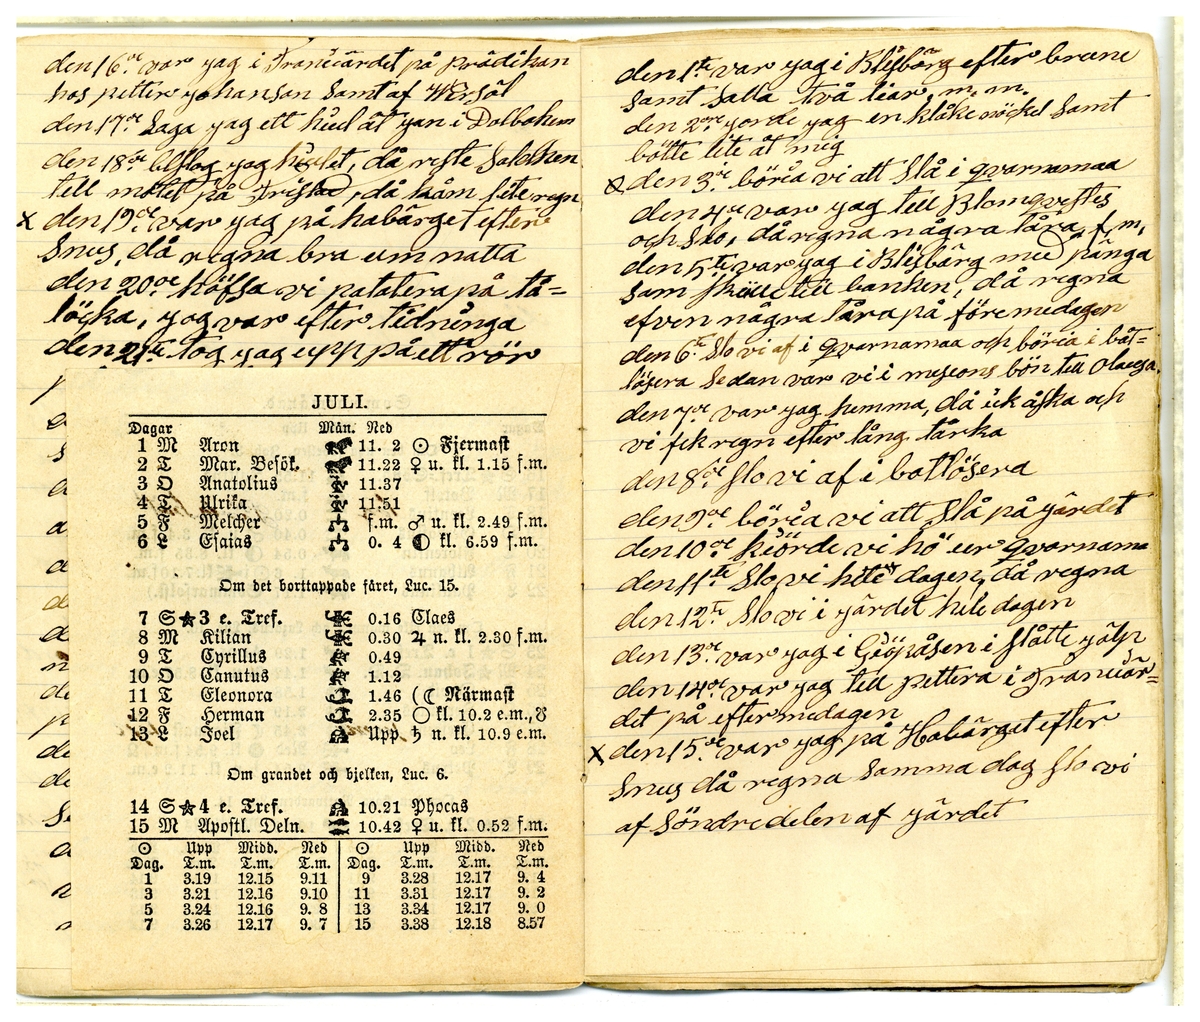 den 16de var yag i Franciärdet på Prädikan
hos petter yohanson samt af
den 17de Saga yag ett hiul åt yan i Dalbohem
den 18de yag hiulet, då reste Soldken
till mötet på Fristad, då kåm lite regn
x den 19de var yag på habärget efter
Snus, då regna bra um natta
den 20de höfsa vi patatera på tå=
löcka, yag var efter tidninga
den 21te tog yag upp på ett rör
JULI.
Dagar Mån. Ned
1 M Aron 11. 2 ☉ Fjermast
2 T Mar. Besök. 11.22 ♀ u. kl. 1.15 f.m.
3 O Anatolius 11.37
4 T Ulrika 11.51
5 F Melcher f.m. ♂ u. kl. 2.49 f.m.
6 L Esaias 0. 4 ☾ kl. 6.59 f.m.
Om det borttappade fåret, Luc. 15.
7 S ★ 3 e. Tref. 0.16 Claes
8 M Kilian 0.30 ♃ n. kl. 2.30 f.m.
9 T Cyrillus 0.49
10 O Canutus 1.12
11 T Eleonora 1.46 (☾ Närmast
12 F Herman 2.35 ○ kl. 10.2 e.m., ☋
13 L Joel Upp ♄ n. kl. 10.9 e.m.
Om grandet och bjelken, Luc. 6.
14 S ★ 4 e. Tref. 10.21 Phocas
15 M Apostl. Deln. 10.42 ♀ u. kl. 0.52 f.m.
☉ Upp Midd. Ned ☉ Upp Midd. Ned
Dag. T.m. T.m. T.m. Dag. T.m. T.m. T.m.
1 3.19 12.15 9.11 9 3.28 12.17 9. 4
3 3.21 12.16 9.10 11 3.31 12.17 9. 2
5 3.24 12.16 9. 8 13 3.34 12.17 9. 0
7 3.26 12.17 9. 7 15 3.38 12.18 8.57
den 1te var yag i Blijbärg efter bräne
samt Salla två liar, m. m.
den 2dre yorde yag en klåke nöckel samt
bötte lite åt mig
x den 3de böria vi att slå i qvarnamaa
den 4de var yag till Blomqvistes
och Slo, då regna några tåra, f, m,
den 5te var yag i Blijbärg med pänga
sam till banken, då regna
efven några tåra på föremedagen
den 6te Slo vi af i qvarnamaa och böria i båt=
lösera Sedan var vi i misions bön till Olausa
den 7de var yag hemma, då åska och
vi fek regn efter lång tårka
den 8de slo vi af i botlösera
den 9de böria vi att slå på yärdet
den 10de kiörde vi hö ur qvarnama
den 11te Slo vi hele dagen, då regna
den 12te Slo vi i yärdet hele dagen
den 13de var yag i Giöpåsen i slåtte yälp
den 14de var yag till pettera i Franciär=
det på eftermedagen
x den 15de var yag på Habärget efter
Snus då regna samma dag slo vi
af söndre delen af yärdet